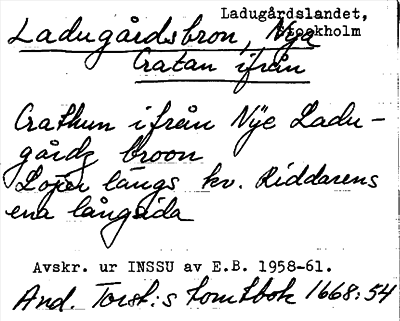 Ladugårdslandet,
Stockholm
Ladugårdsbron, Nya
Gratan ifrån
Crathun ifrån Nÿe Ladu-
gårdz broon
Löper längs kv. Riddarens
ena långsida
Avskr. ur INSSU av E.B. 1958-61.
And. Torst:s tomtbok 1668:54